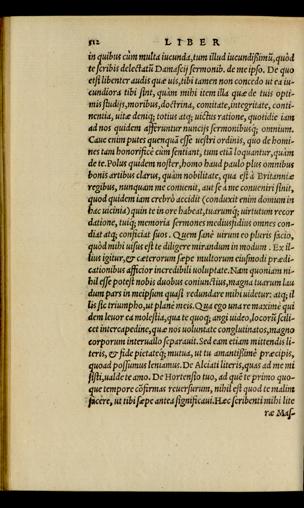 512 LIBER
in quibus cùm multa iucunda, tum illud iucundißimũ, quòd
te scribis delectatũ Damascij sermonib. de me ipso. De quo
etsi libenter audis quæ uis, tibi tamen non concedo ut ea iu-
cundiora tibi sint, quàm mihi item illa quæ de tuis opti-
mis studijs, moribus, doctrina, comitate, integritate, conti-
nentia, uitæ deniq; totius atq; uictus ratione, quotidie iam
ad nos quidem afferuntur nuncijs sermonibusq; omnium.
Caue enim putes quenquã esse uestri ordinis, quo de homi-
nes tam honorificè cùm sentiant, tum etiã loquantur, quàm
de te. Polus quidem noster, homo haud paulo plus omnibus
bonis artibus clarus, quàm nobilitate, quæ est à Britanniæ
regibus, nunquam me conuenit, aut se à me conueniri sinit,
quod quidem iam crebrò accidit (conduxit enim domum in
hac uicinia) quin te in ore habeat, tuarumq; uirtutum recor
datione, tuiq; memoria sermones mediusfidius omnes con-
diat atq; conficiat suos. Quem sanè uirum eo pluris facio,
quòd mihi uisus est te diligere mirandum in modum. Ex il-
lius igitur, & cæterorum sæpe multorum eiusmodi prædi-
cationibus afficior incredibili uoluptate. Nam quoniam ni-
hil esse potest nobis duobus coniunctius, magna tuarum lau
dum pars in meipsum quasi redundare mihi uidetur: atq; il
lis sic triumpho, ut planè meis. Qua ego una re maximè qui
dem leuor ea molestia, qua te quoq; angi uideo, locorũ scili-
cet intercapedine, quæ nos uoluntate conglutinatos, magno
corporum interuallo separauit. Sed eam etiam mittendis li-
teris, & fide pietatéq; mutua, ut tu amantißimè præcipis,
quoad possumus leniamus. De Alciati literis, quas ad me mi
sisti, ualde te amo. De Hortensio tuo, ad quẽ te primo quo-
que tempore cõfirmas reuersurum, nihil est quod te malim
facere, ut tibi sæpe antea significaui. Hæc scribenti mihi lite
ræ Mas-